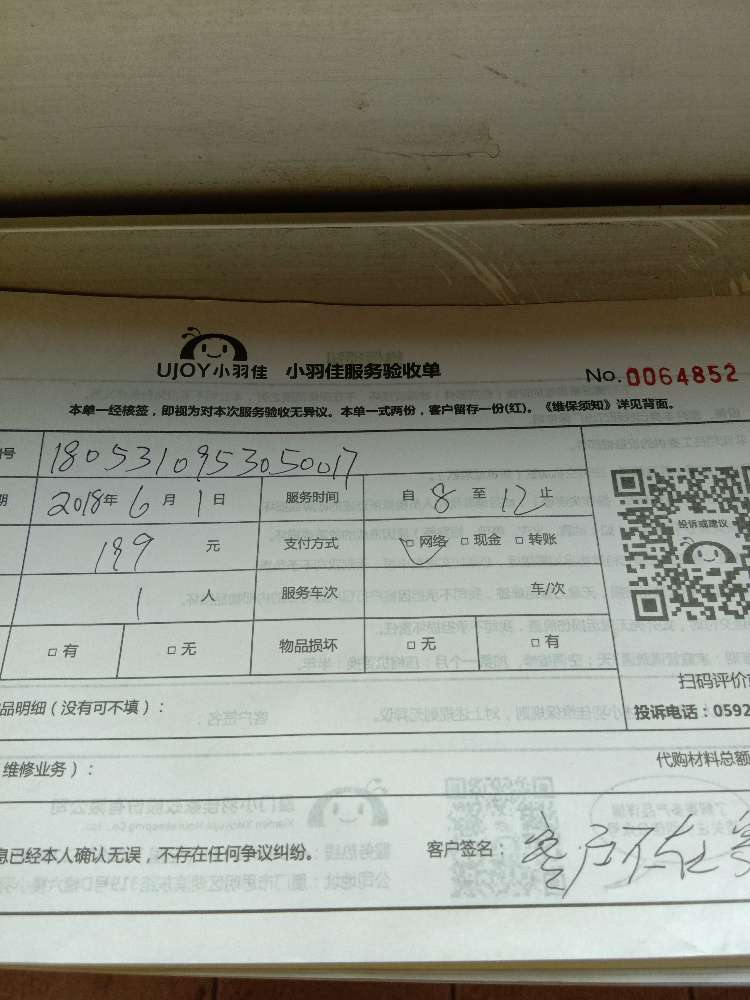 UJOY小羽佳 小羽佳服务验收单 No.0064852
本单一经核签，即视为对本次服务验收无异议。本单一式两份，客户留存一份(红)。《维保须知》详见背面。
号 1805310953050017
期 2018年6月1日 服务时间 自8至12止
199元 支付方式 □网络 □现金 □转账
投诉或建议
1人 服务车次 车/次
□有 □无 物品损坏 □无 □有
扫码评价
品明细（没有可不填）：
投诉电话：0592
维修业务）：
代购材料总额
息已经本人确认无误，不存在任何争议纠纷。 客户签名：客户不在